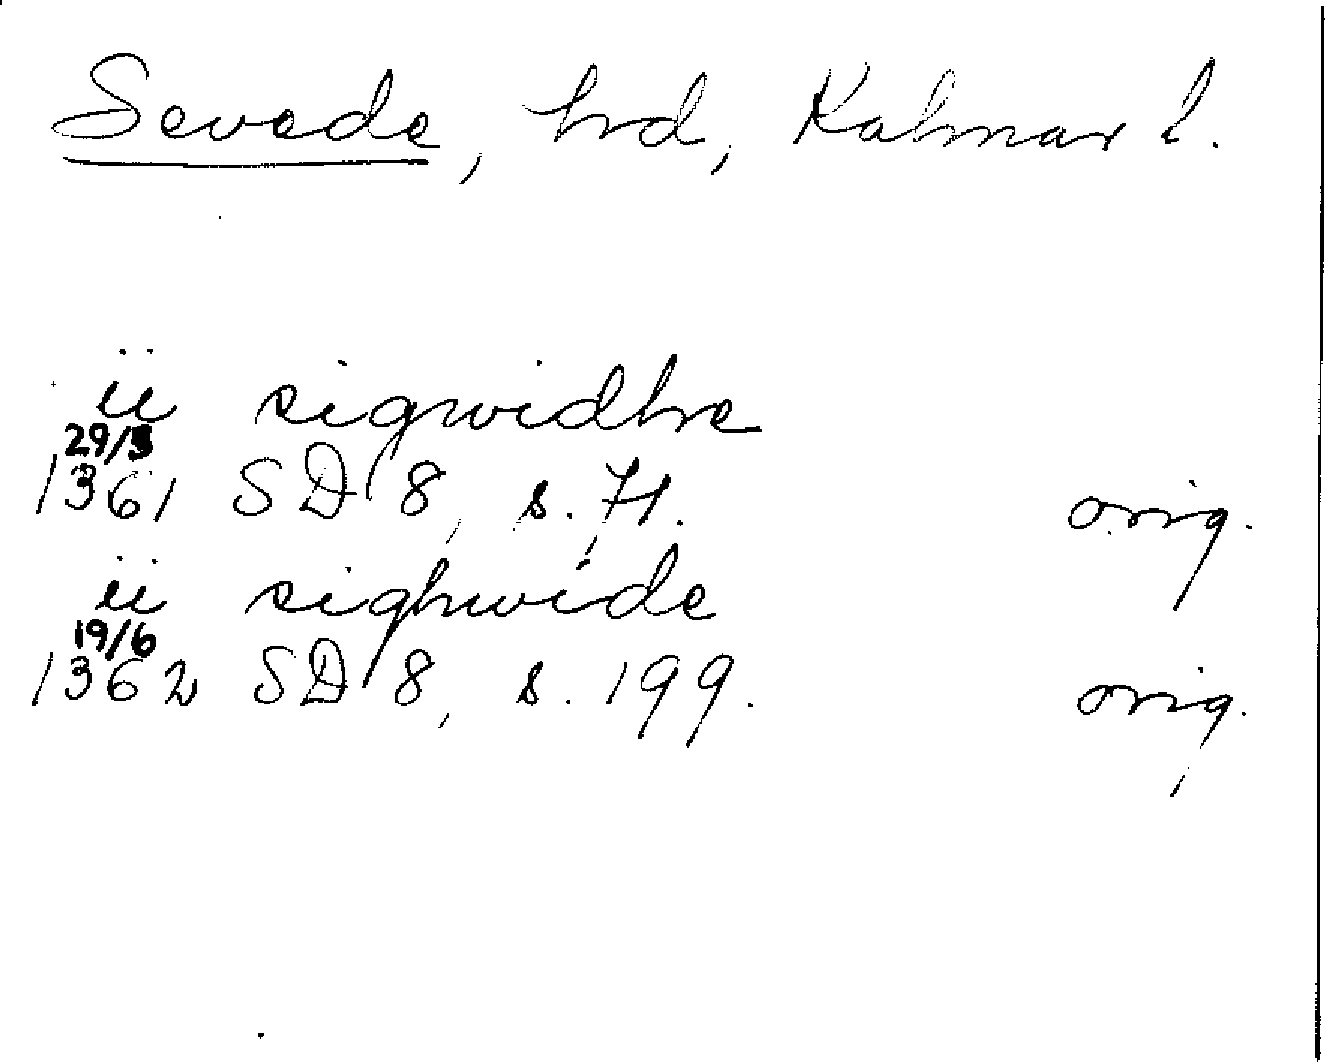 Sevede, hd, Kalmar l.
ii sigwidhe
29/5
1361 SD 8, s. 71. orig.
ii sighwide
19/6
1362 SD 8, s. 199. orig.